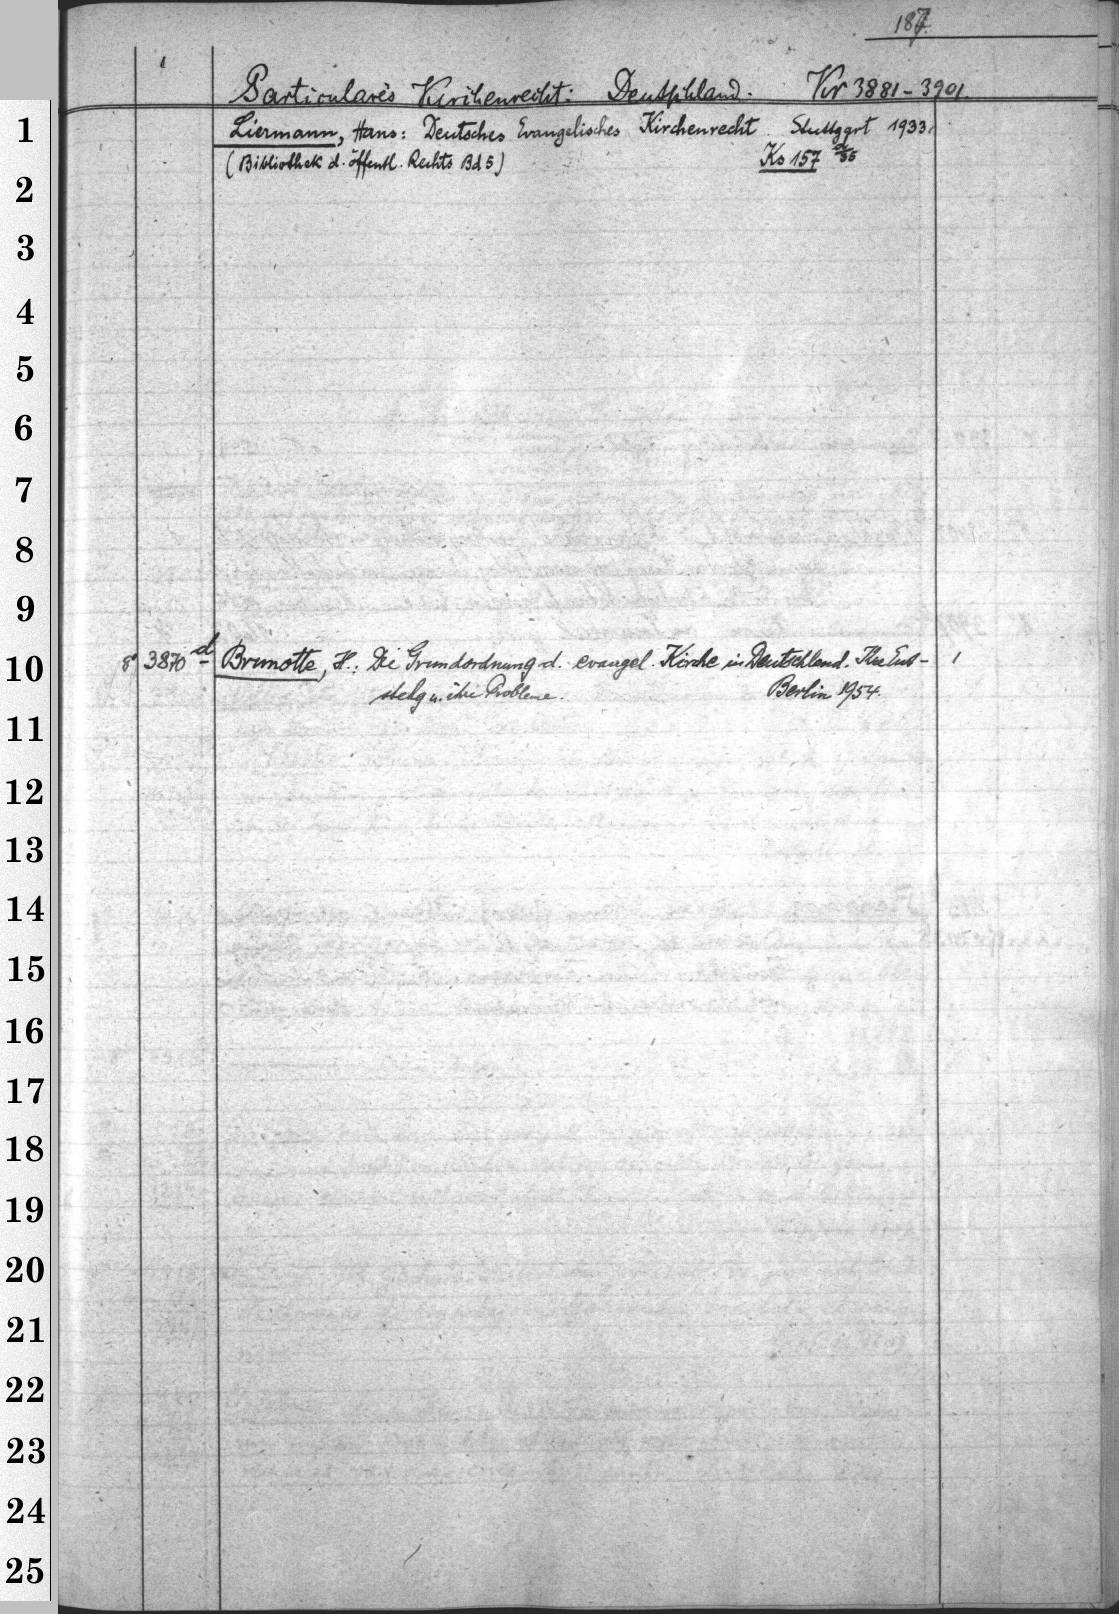 187.
Particulares Kirchenrecht: Deutschland. Kr 3881-3901.
1
Liermann, Hans: Deutsches Evangelisches Kirchenrecht. Stuttgart 1933.
(Bibliothek d. öffentl. Rechts Bd 5) Ks 157
2
3
4
5
6
7
8
9
10
8° 3870 d Brunotte, H.: Die Grundordnung d. evangel. Kirche in Deutschland. Ihre Ent- 1
stehg u. ihre Probleme. Berlin 1954.
11
12
13
14
15
16
17
18
19
20
21
22
23
24
25